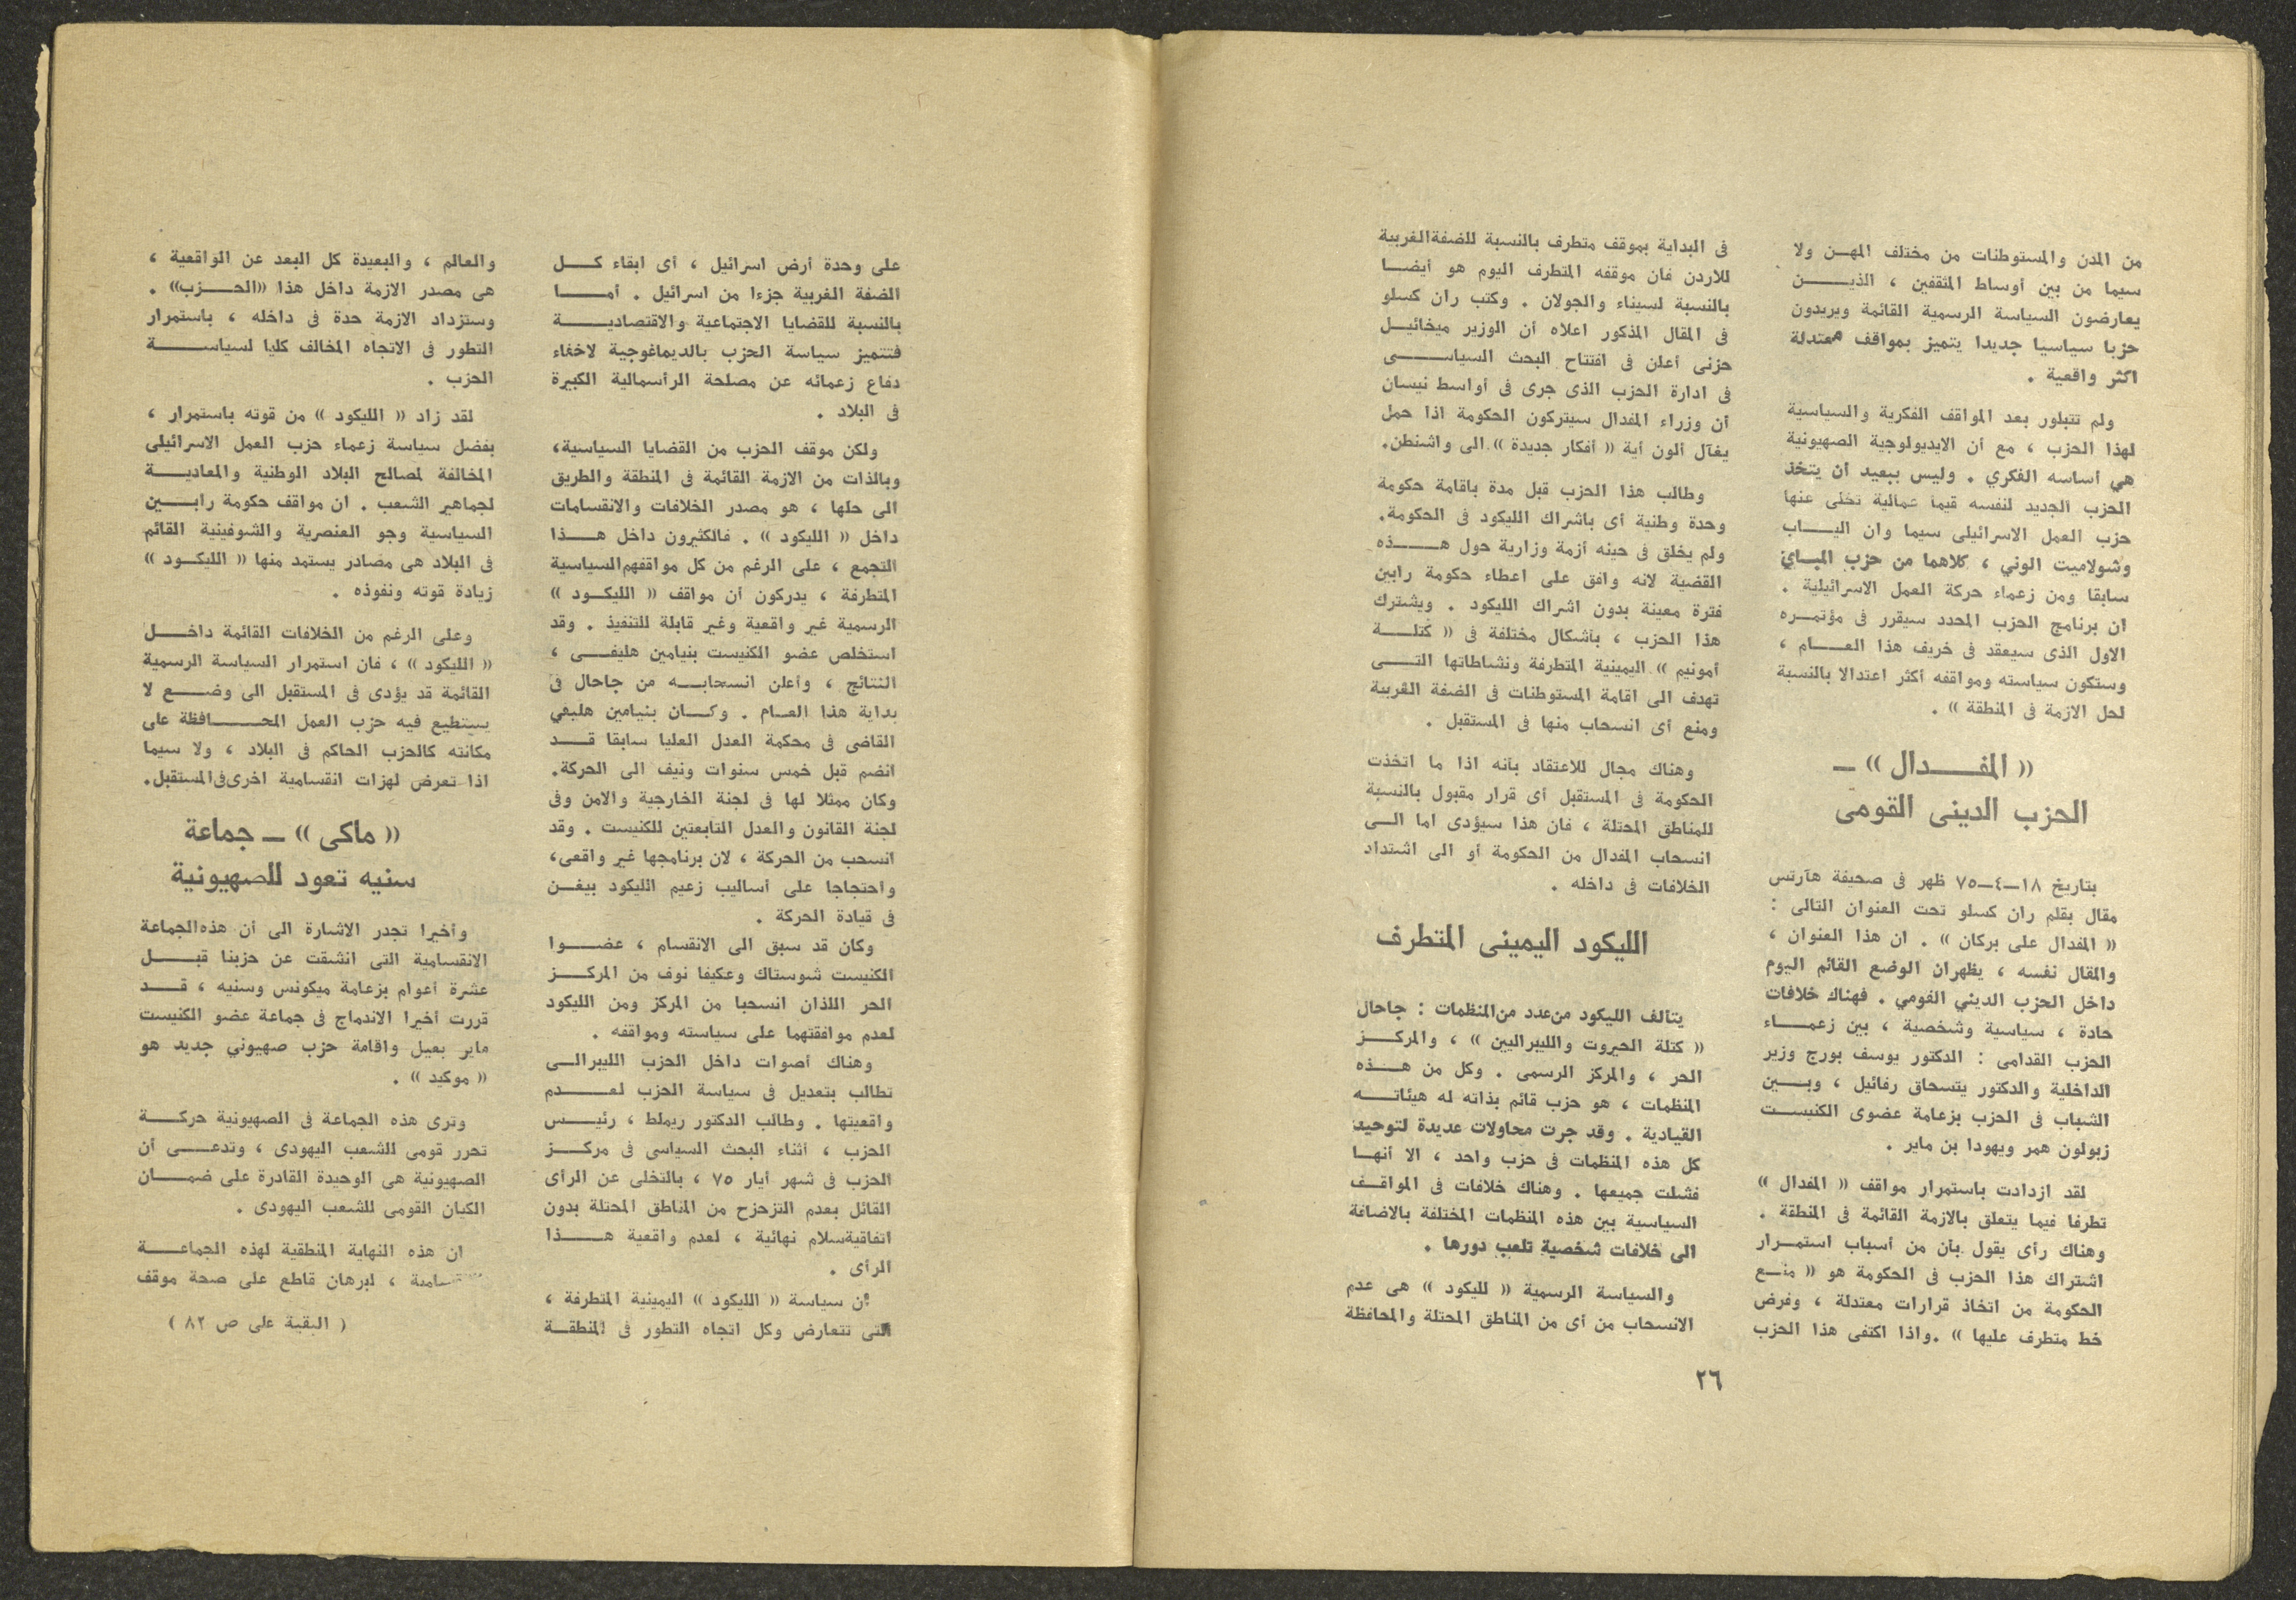 من المدن والمستوطنات من مختلف المهن ولا
سيما من بين أوساط المثقفين ، الذين
يعارضون السياسة الرسمية القائمة ويريدون
حزبا سياسيا جديدا يتميز بمواقف معتدلة
اكثر واقعية .
ولم تتبلور بعد المواقف الفكرية والسياسية
لهذا الحزب ، مع أن الايديولوجية الصهيونية
هي أساسه الفكري . وليس ببعيد أن يتخذ
الحزب الجديد لنفسه قيما عمالية تخلى عنها
حزب العمل الاسرائيلى سيما وان الياب
وشولاميت الوني ، كلاهما من حزب المباي
سابقا ومن زعماء حركة العمل الاسرائيلية .
ان برنامج الحزب المحدد سيقرر فى مؤتمره
الاول الذى سيعقد فى خريف هذا العام ،
وستكون سياسته ومواقفه أكثر اعتدالا بالنسبة
لحل الازمة فى المنطقة » .
« المفدال » ــ
الحزب الدينى القومى
بتاريخ ١٨-٤-٧٥ ظهر فى صحيفة هآرتس
مقال بقلم ران كسلو تحت العنوان التالى :
« المفدال على بركان » . ان هذا العنوان ،
والمقال نفسه ، يظهران الوضع القائم اليوم
داخل الحزب الديني القومي . فهناك خلافات
حادة ، سياسية وشخصية ، بين زعماء
الحزب القدامى : الدكتور يوسف بورج وزير
الداخلية والدكتور يتسحاق رفائيل ، وبين
الشباب فى الحزب بزعامة عضوى الكنيست
زبولون همر ويهودا بن ماير .
لقد ازدادت باستمرار مواقف « المفدال »
تطرفا فيما يتعلق بالازمة القائمة فى المنطقة .
وهناك رأى يقول بأن من أسباب استمرار
اشتراك هذا الحزب فى الحكومة هو « منع
الحكومة من اتخاذ قرارات معتدلة ، وفرض
خط متطرف عليها » .واذا اكتفى هذا الحزب
فى البداية بموقف متطرف بالنسبة للضفة الغربية
للاردن فان موقفه المتطرف اليوم هو أيضا
بالنسبة لسيناء والجولان . وكتب ران كسلو
فى المقال المذكور اعلاه أن الوزير ميخائيل
حزنى أعلن فى افتتاح البحث السياسى
فى ادارة الحزب الذى جرى فى أواسط نيسان
أن وزراء المفدال سيتركون الحكومة اذا حمل
يغآل ألون أية « أفكار جديدة » الى واشنطن.
وطالب هذا الحزب قبل مدة باقامة حكومة
وحدة وطنية أى باشراك الليكود فى الحكومة.
ولم يخلق فى حينه أزمة وزارية حول هذه
القضية لانه وافق على اعطاء حكومة رابين
فترة معينة بدون اشراك الليكود . ويشترك
هذا الحزب ، بأشكال مختلفة فى « كتلة
أمونيم » اليمينية المتطرفة ونشاطاتها التى
تهدف الى اقامة المستوطنات فى الضفة الغربية
ومنع أى انسحاب منها فى المستقبل .
وهناك مجال للاعتقاد بأنه اذا ما اتخذت
الحكومة فى المستقبل أى قرار مقبول بالنسبة
للمناطق المحتلة ، فان هذا سيؤدى اما الى
انسحاب المفدال من الحكومة أو الى اشتداد
الخلافات فى داخله .
الليكود اليمينى المتطرف
يتألف الليكود من عدد من المنظمات : جاحال
« كتلة الحيروت والليبراليين » ، والمركز
الحر ، والمركز الرسمى . وكل من هذه
المنظمات ، هو حزب قائم بذاته له هيئاته
القيادية . وقد جرت محاولات عديدة لتوحيد
كل هذه المنظمات فى حزب واحد ، الا أنها
فشلت جميعها . وهناك خلافات فى المواقف
السياسية بين هذه المنظمات المختلفة بالاضافة
الى خلافات شخصية تلعب دورها .
والسياسة الرسمية « لليكود » هى عدم
الانسحاب من أى من المناطق المحتلة والمحافظة
٢٦
على وحدة أرض اسرائيل ، أى ابقاء كل
الضفة الغربية جزءا من اسرائيل . أما
بالنسبة للقضايا الاجتماعية والاقتصادية
فتتميز سياسة الحزب بالديماغوجية لاخفاء
دفاع زعمائه عن مصلحة الرأسمالية الكبيرة
فى البلاد .
ولكن موقف الحزب من القضايا السياسية،
وبالذات من الازمة القائمة فى المنطقة والطريق
الى حلها ، هو مصدر الخلافات والانقسامات
داخل « الليكود » . فالكثيرون داخل هذا
التجمع ، على الرغم من كل مواقفهم السياسية
المتطرفة ، يدركون أن مواقف « الليكود »
الرسمية غير واقعية وغير قابلة للتنفيذ . وقد
استخلص عضو الكنيست بنيامين هليفى ،
النتائج ، وأعلن انسحابه من جاحال فى
بداية هذا العام . وكان بنيامين هليفي
القاضى فى محكمة العدل العليا سابقا قد
انضم قبل خمس سنوات ونيف الى الحركة.
وكان ممثلا لها فى لجنة الخارجية والامن وفى
لجنة القانون والعدل التابعتين للكنيست . وقد
انسحب من الحركة ، لان برنامجها غير واقعى،
واحتجاجا على أساليب زعيم الليكود بيغن
فى قيادة الحركة .
وكان قد سبق الى الانقسام ، عضوا
الكنيست شوستاك وعكيفا نوف من المركز
الحر اللذان انسحبا من المركز ومن الليكود
لعدم موافقتهما على سياسته ومواقفه .
وهناك أصوات داخل الحزب الليبرالى
تطالب بتعديل فى سياسة الحزب لعدم
واقعيتها . وطالب الدكتور ريملط ، رئيس
الحزب ، أثناء البحث السياسى فى مركز
الحزب فى شهر أيار ٧٥ ، بالتخلى عن الرأى
القائل بعدم التزحزح من المناطق المحتلة بدون
اتفاقية سلام نهائية ، لعدم واقعية هذا
الرأى .
أن سياسة « الليكود » اليمينية المتطرفة ،
التى تتعارض وكل اتجاه التطور فى المنطقة
والعالم ، والبعيدة كل البعد عن الواقعية ،
هى مصدر الازمة داخل هذا «الحزب» .
وستزداد الازمة حدة فى داخله ، باستمرار
التطور فى الاتجاه المخالف كليا لسياسة
الحزب .
لقد زاد « الليكود » من قوته باستمرار ،
بفضل سياسة زعماء حزب العمل الاسرائيلى
المخالفة لمصالح البلاد الوطنية والمعادية
لجماهير الشعب . ان مواقف حكومة رابين
السياسية وجو العنصرية والشوفينية القائم
فى البلاد هى مصادر يستمد منها « الليكود »
زيادة قوته ونفوذه .
وعلى الرغم من الخلافات القائمة داخل
« الليكود » ، فان استمرار السياسة الرسمية
القائمة قد يؤدى فى المستقبل الى وضع لا
يستطيع فيه حزب العمل المحافظة على
مكانته كالحزب الحاكم فى البلاد ، ولا سيما
اذا تعرض لهزات انقسامية اخرى فى المستقبل.
« ماكى » ــ جماعة
سنيه تعود للصهيونية
وأخيرا تجدر الاشارة الى أن هذه الجماعة
الانقسامية التى انشقت عن حزبنا قبل
عشرة أعوام بزعامة ميكونس وسنيه ، قد
قررت أخيرا الاندماج فى جماعة عضو الكنيست
ماير بعيل واقامة حزب صهيوني جديد هو
« موكيد » .
وترى هذه الجماعة فى الصهيونية حركة
تحرر قومى للشعب اليهودى ، وتدعى أن
الصهيونية هى الوحيدة القادرة على ضمان
الكيان القومى للشعب اليهودى .
ان هذه النهاية المنطقية لهذه الجماعة
، لبرهان قاطع على صحة موقف
( البقية على ص ٨٢ )